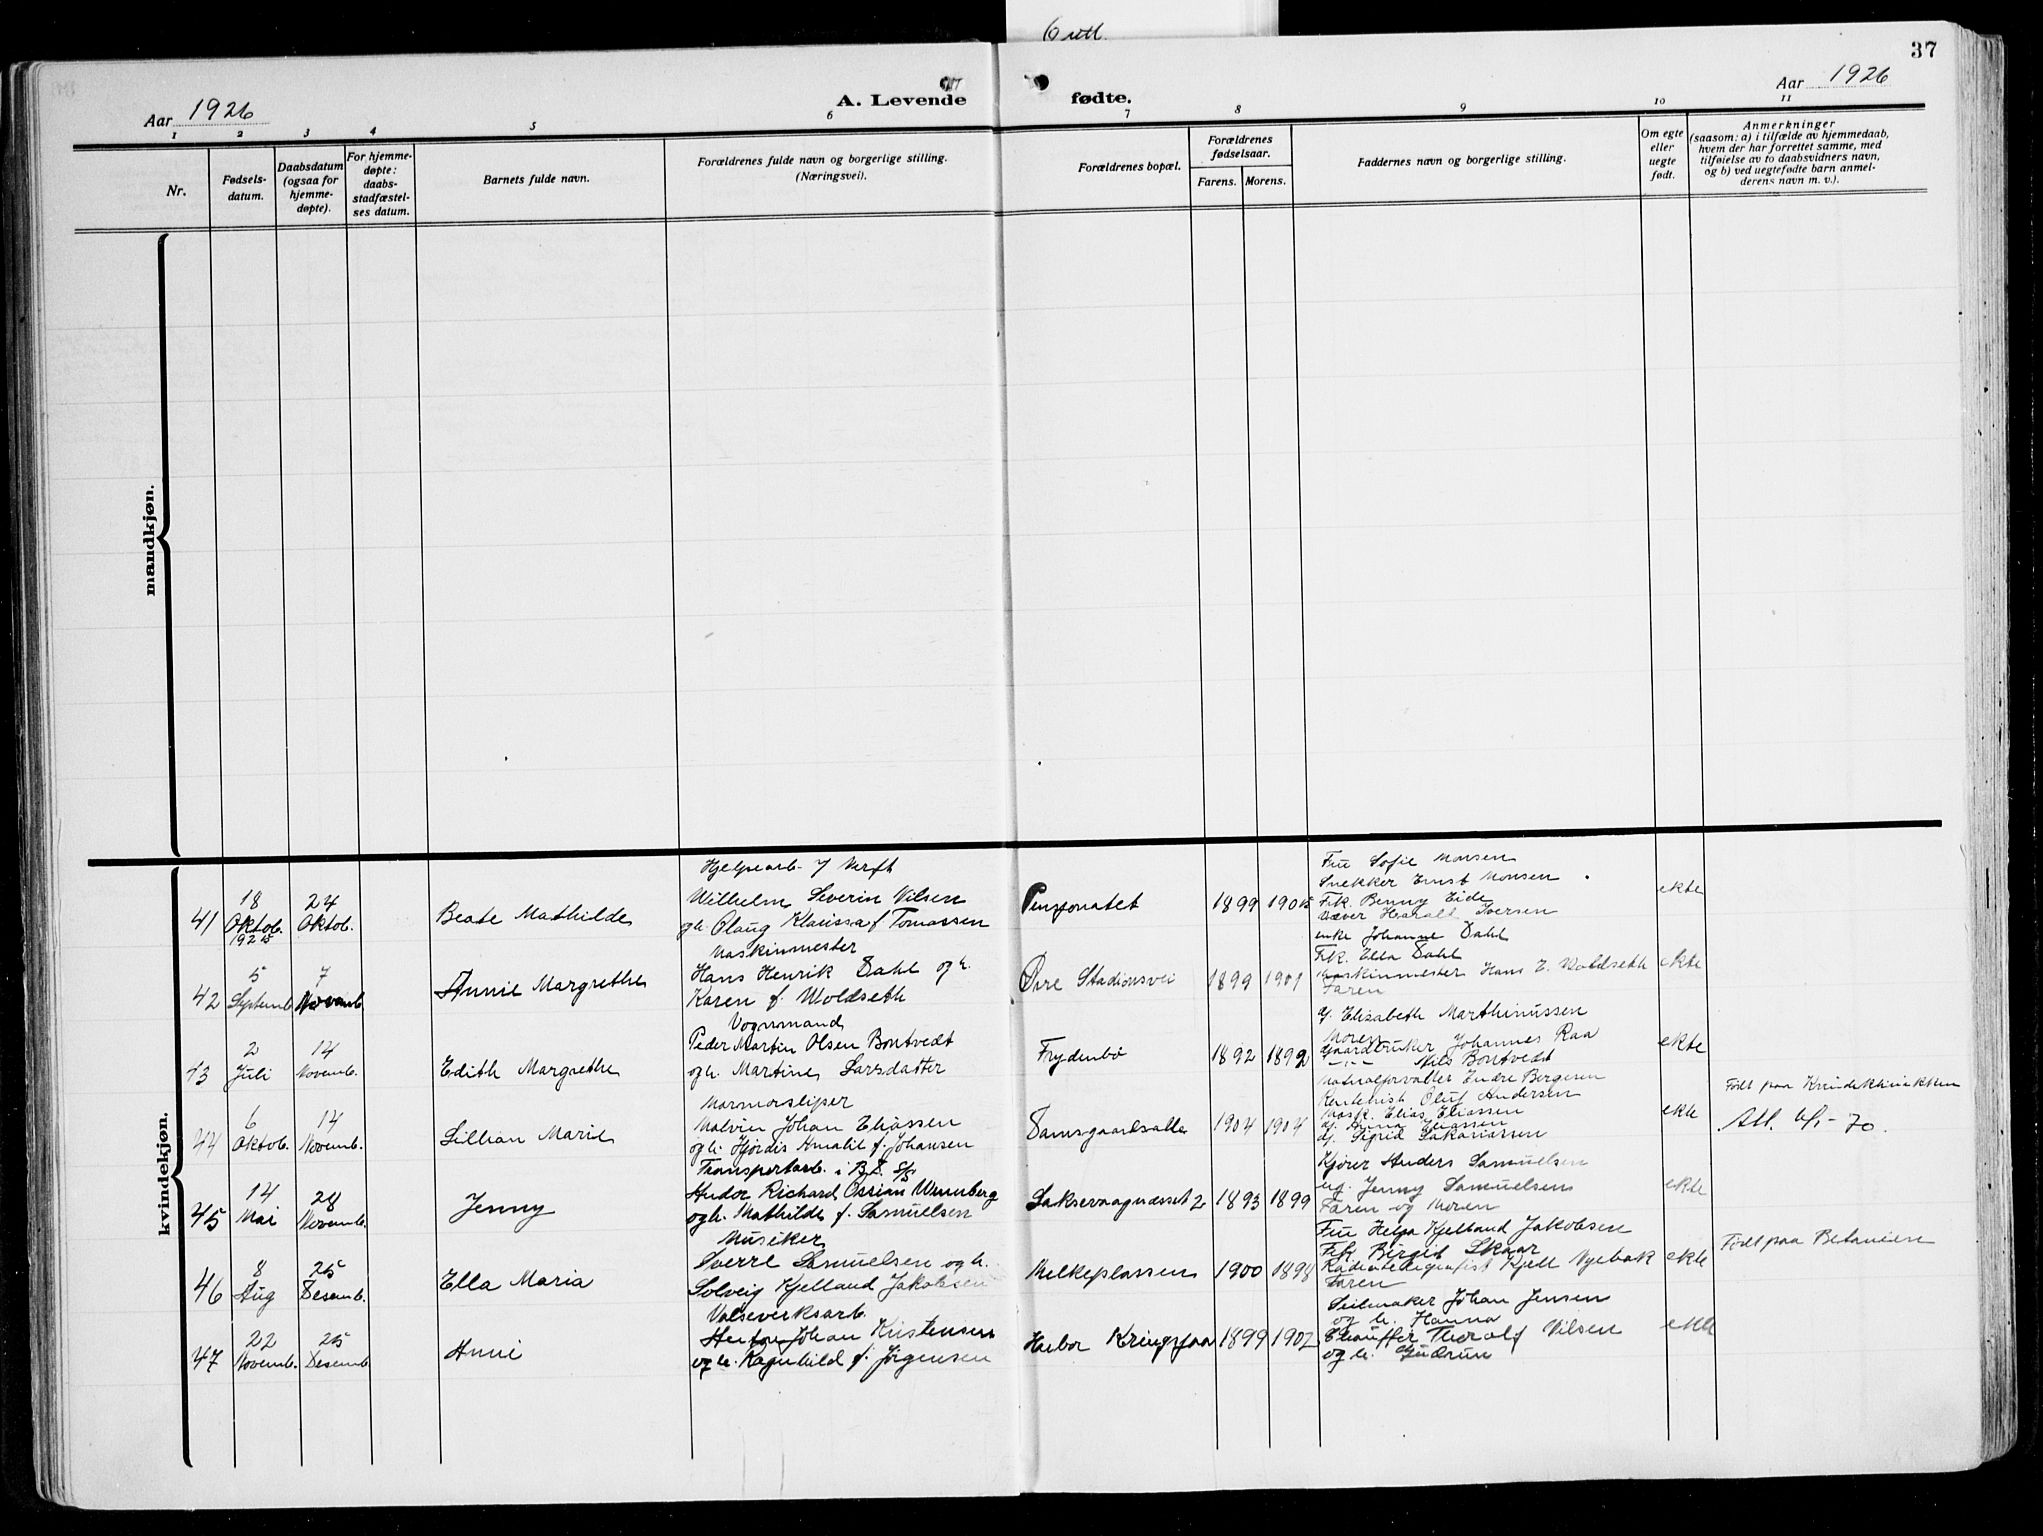 6 utl.
37
Aar 1926
A. Levende
fødte.
Aar 1926
1 2 3 4 5 6 7 8 9 10 11
Nr.
Fødsels-
datum.
Daabsdatum
(ogsaa for
hjemme-
døpte).
For hjemme-
døpte:
daabs-
stadfæstel-
ses datum.
Barnets fulde navn.
Forældrenes fulde navn og borgerlige stilling.
(Næringsvei).
Forældrenes bopæl.
Forældrenes
fødselsaar.
Farens. Morens.
Faddernes navn og borgerlige stilling.
Om egte
eller
uegte
født.
Anmerkninger
(saasom: a) i tilfælde av hjemmedaab,
hvem der har forrettet samme, med
tilføielse av to daabsvidners navn,
og b) ved uegtefødte barn anmel-
derens navn m. v.).
mandkjøn.
kvindekjøn.
41
18
Oktob.
1925
24
Oktob.
Beate Mathilde
Hjelpearb. Verft
Wilhelm Severin Nilsen
og h. Olaug Klaussa f Tomassen
Pensjonatet
1899
1905
Fru Sofie Monsen
Snekker Ernst Monsen
Frk. Benny Eide
Harald Iversen
ekte
42
5
Septemb.
7
Novemb.
Annie Margrethe
Maskinmester
Hans Henrik Dahl og h.
Karen f. Woldseth
Øvre Stadionsvei
1899
1901
enke Johanne Dahl
Frk. Ella Dahl
Maskinmester Hans E. Woldseth
Faren
ekte
43
2
Juli
14
Novemb.
Edith Margrethe
Vognmand
Peder Martin Olsen Bontvedt
og h. Martine Larsdatter
Frydenbö
1892
1892
g. Elizabeth Marthinussen
Moren
Gaardbruker Johannes Raa
-"- Nils Bontvedt
ekte
44
6
Oktob.
14
Novemb.
Lillian Marie
Marmorsliper
Malvin Johan Eliassen
og h. Hjördis Amalie f. Johansen
Damsgaardsalle
1904
1904
Materialforvalter Endre Bergesen
Oluf Andersen
Mask. Elias Eliassen
g. Anna Eliassen
g. Sigrid Sakariassen
ekte
Födt paa Kvindeklinikken
Att. 70.
45
14
Mai
28
Novemb.
Jenny
Transportarb. i B.
Andor Richard Ossian Wennberg
og h. Mathilde f. Samuelsen
Laksevaagneset 2
1893
1899
Kjörer Anders Samuelsen
ug. Jenny Samuelsen
Faren og Moren
ekte
46
8
Aug
25
Desemb.
Ella Maria
Musiker
Sverre Samuelsen og h.
Solveig Kjelland Jakobsen
Melkeplassen
1900
1898
Fru Helga Kjelland Jakobsen
Frk. Birgit Skaar
Radiotelegrafist Kjell Nyebak
Faren
ekte
Födt paa Betanien
47
22
Novemb.
25
Desemb.
Anni
Valseverksarb.
Johan Kristensen
og h. Ragnhild f. Jörgensen
1899
1902
Seilmaker Johan Jensen
og h. Hanna
Chauffer Thoralf Nilsen
og h. Gudrun
ekte